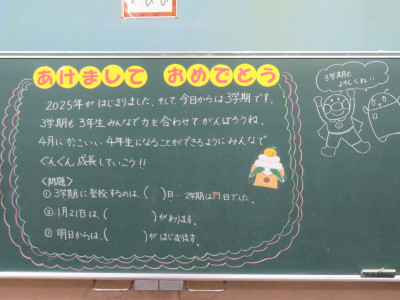 あけまして おめでとう
2025年がはじまりました。そして、今日からは3学期です。
3学期も3年生みんなで力を合わせてがんばろうね。
4月にかっこいい4年生になることができるようにみんなで
ぐんぐん成長していこう!!
<問題>
① 3学期に登校するのは、( )日…2学期は77日でした。
② 1月21日は、( )があります。
③ 明日からは、( )がはじまります。
3学期も
よろしくね!!